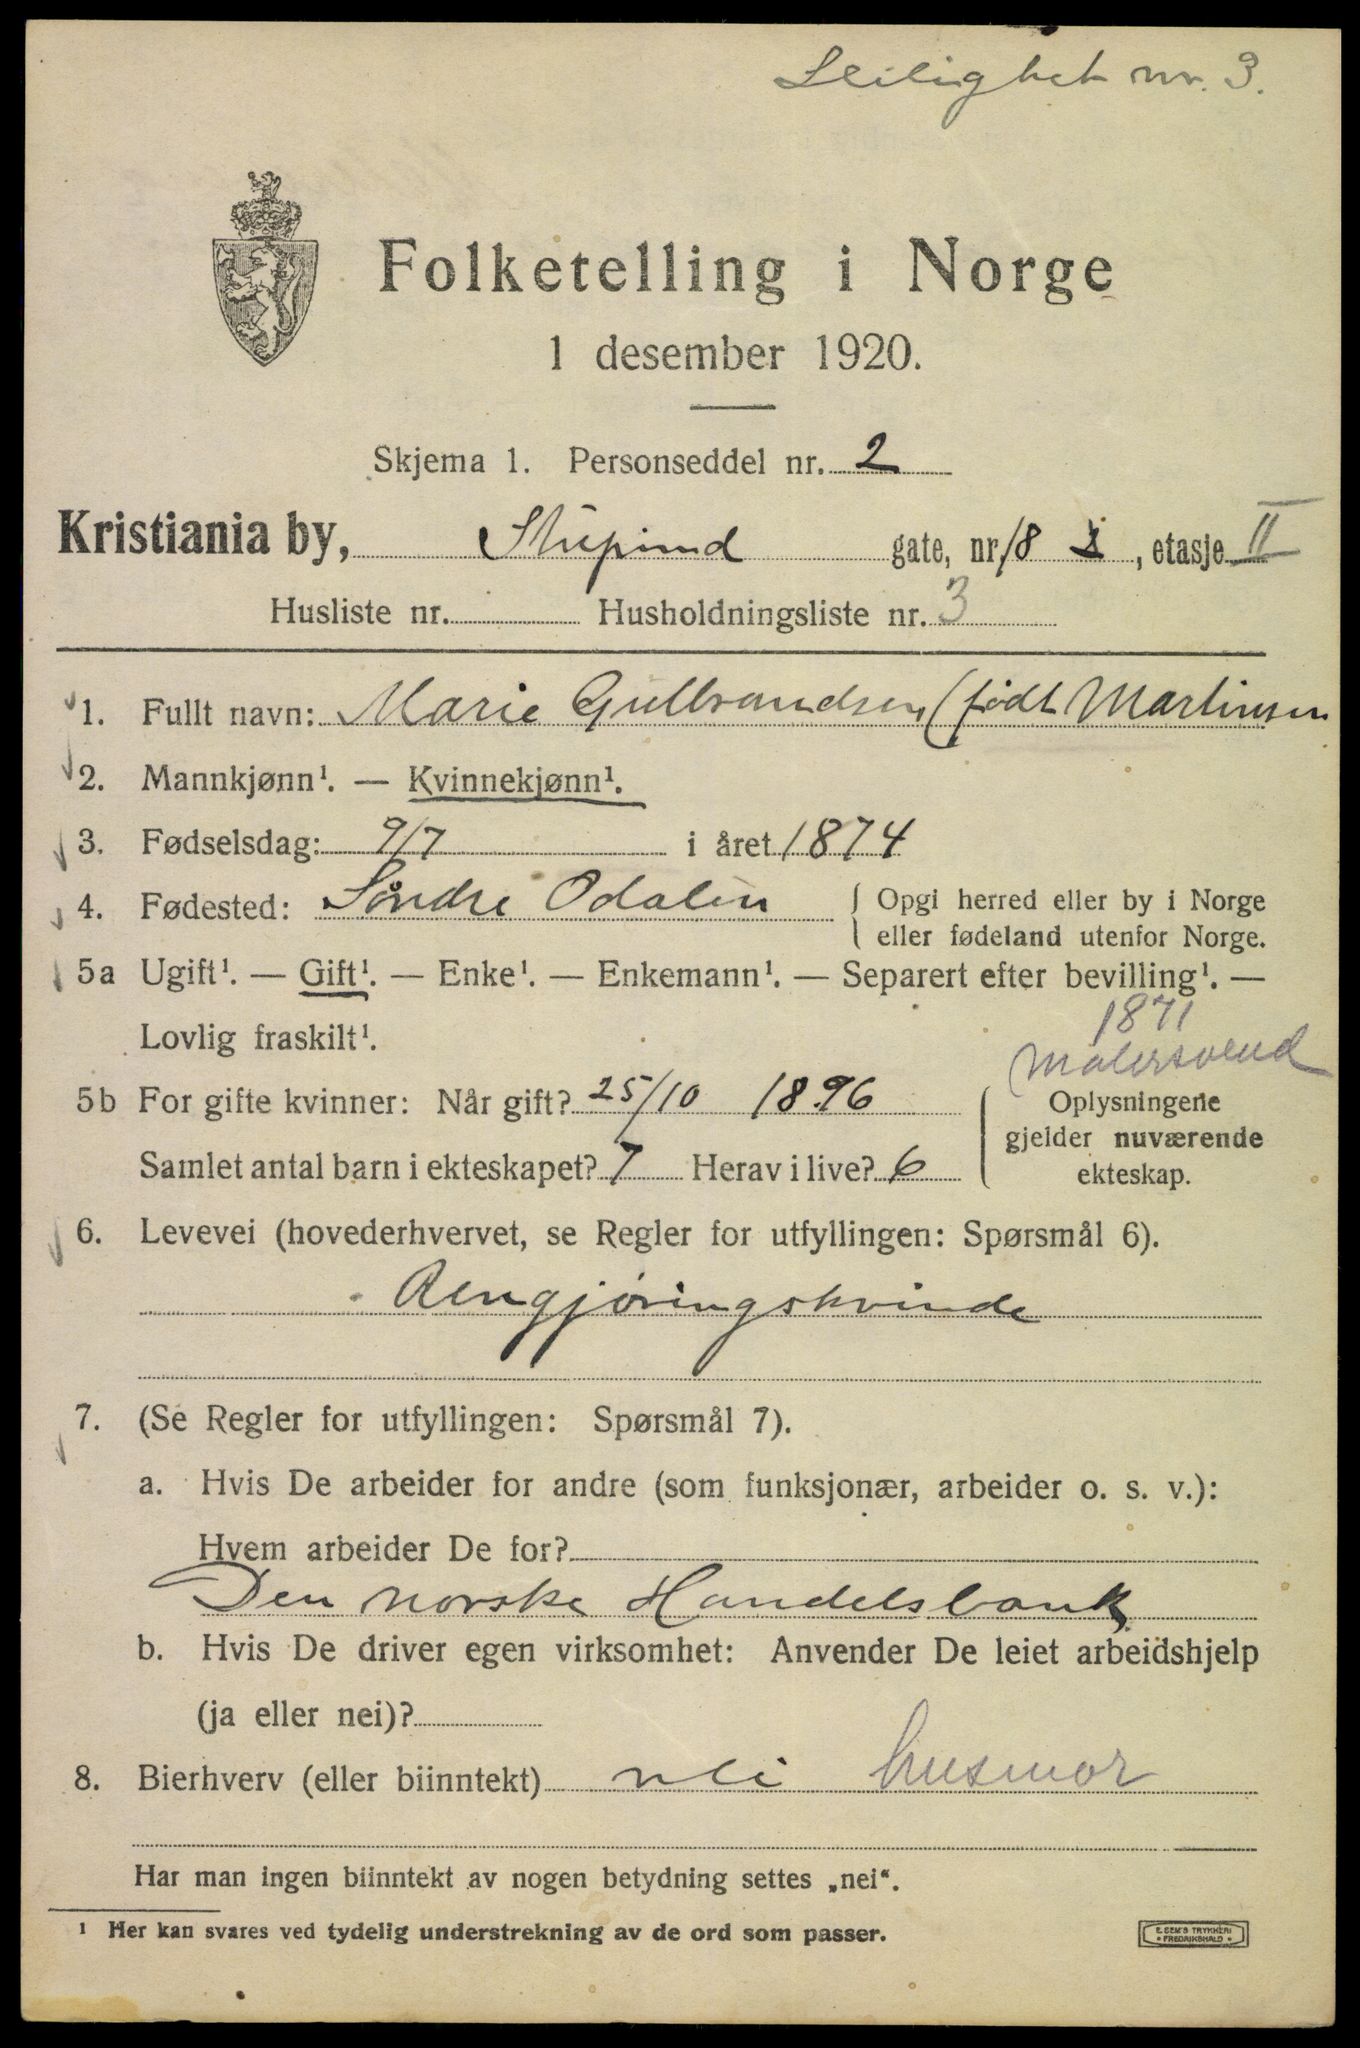 Leilighet nr. 3.
Folketelling i Norge
1 desember 1920.
Skjema 1. Personseddel nr. 2
Kristiania by, Stupind gate, nr. 18, etasje II
Husliste nr. Husholdningsliste nr. 3
1. Fullt navn: Marie Gulbrandsen (født Martinsen
2. Mannkjønn¹. — Kvinnekjønn¹.
3. Fødselsdag: 9/7 i året 1874
4. Fødested: Søndre Odalen { Opgi herred eller by i Norge
eller fødeland utenfor Norge.
5a Ugift¹. — Gift¹. — Enke¹. — Enkemann¹. — Separert efter bevilling¹. —
Lovlig fraskilt¹.
1871
Malersvend
5b For gifte kvinner: Når gift? 25/10 1896
Samlet antal barn i ekteskapet? 7 Herav i live? 6
Oplysningene
gjelder nuværende
ekteskap.
6. Levevei (hovederhvervet, se Regler for utfyllingen: Spørsmål 6).
Rengjøringskvinde
7. (Se Regler for utfyllingen: Spørsmål 7).
a. Hvis De arbeider for andre (som funksjonær, arbeider o. s. v.):
Hvem arbeider De for?
Den norske Handelsbank
b. Hvis De driver egen virksomhet: Anvender De leiet arbeidshjelp
(ja eller nei)?
8. Bierhverv (eller biinntekt) nei husmor
Har man ingen biinntekt av nogen betydning settes „nei“.
¹ Her kan svares ved tydelig understrekning av de ord som passer.
E. SEM'S TRYKKERI
• FREDRIKSHALD •